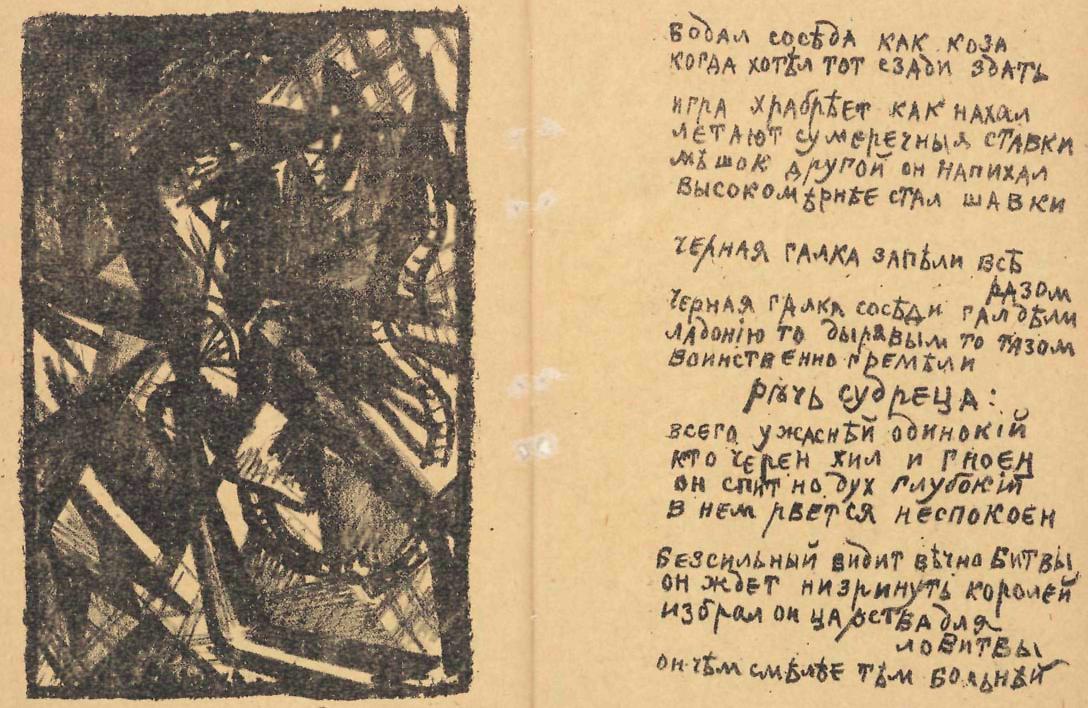 БОДАЛ СОСѢДА КАК КОЗА
КОГДА ХОТѢЛ ТОТ СЗАДИ ЗДАТЬ
ИГРА ХРАБРѢЕТ КАК НАХАЛ
ЛЕТАЮТ СУМЕРЕЧНЫЯ СТАВКИ
МѢШОК ДРУГОЙ ОН НАПИХАЛ
ВЫСОКОМѢРНѢЕ СТАЛ ШАВКИ
ЧЕРНАЯ ГАЛКА ЗАПѢЛИ ВСѢ
РАЗОМ
ЧЕРНАЯ ГАЛКА СОСѢДИ ГАЛДѢЛИ
ЛАДОНІЮ ТО ДЫРЯВЫМ ТО ТАЗОМ
ВОИНСТВЕННО ГРЕМѢЛИ
РѢЧЬ СУДРЕЦА:
ВСЕГО УЖАСНѢЙ ОДИНОКІЙ
КТО ЧЕРЕН ХИЛ И ГНОЕН
ОН СПИТ НО ДУХ ГЛУБОКІЙ
В НЕМ РВЕТСЯ НЕСПОКОЕН
БЕЗСИЛЬНЫЙ ВИДИТ ВѢЧНО БИТВЫ
ОН ЖДЕТ НИЗРИНУТЬ КОРОЛЕЙ
ИЗБРАЛ ОН ЦАРСТВА ДЛЯ
ЛОВИТВЫ
ОН ЧѢМ СМѢЛѢЕ ТѢМ БОЛЬНѢЙ